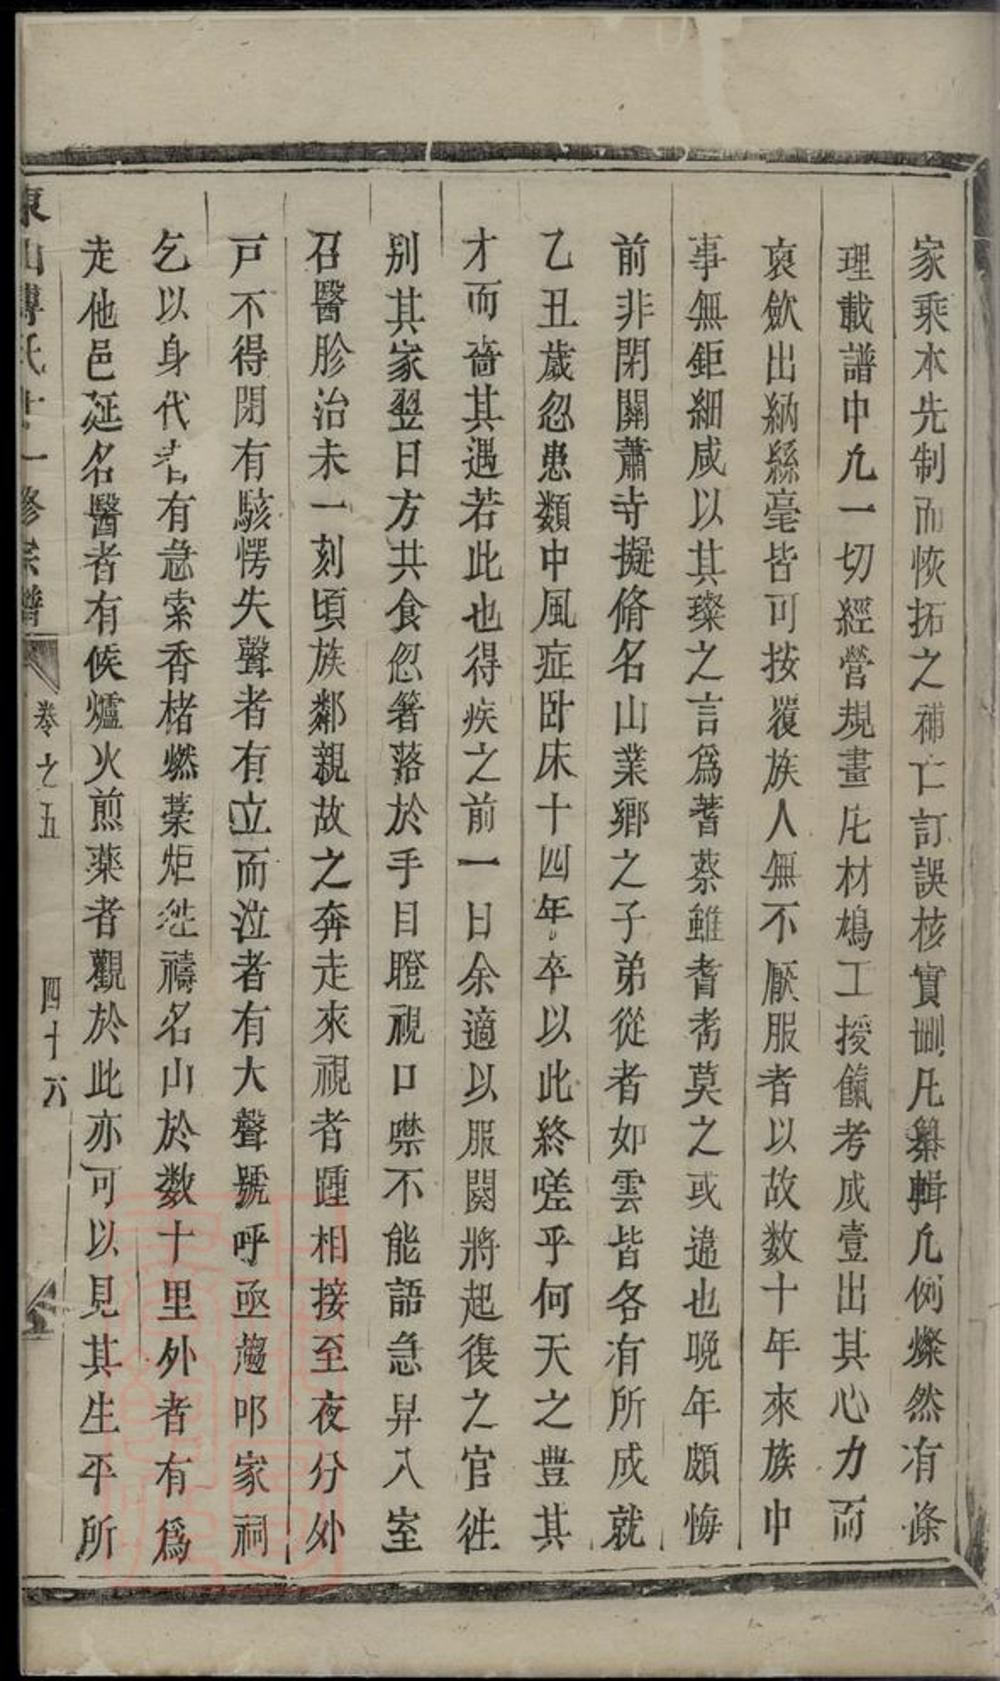 家乘本先制而恢拓之補亡訂誤核實刪凡纂輯凢例燦然有條
理載譜中凢一切經營規畫庀材鳩工授餼考成壹出其心力而
裒歛出納縣毫皆可按覆族人無不厭服者以故数十年來族中
事無鉅細咸以其璨之言爲蓍蔡雖耆耇莫之或違也晚年頗悔
前非閉關蕭寺擬脩名山業鄉之子弟從者如雲皆各有所成就
乙丑歲忽患類中風症卧床十四年卒以此終嗟乎何天之豊其
才而嗇其遇若此也得疾之前一日余適以服闋將起復之官徃
别其家翌日方共食忽箸落於手目瞪視口噤不能語急舁入室
召醫胗治未一刻頃族鄰親故之奔走來視者踵相接至夜分外
戸不得閉有駭愕失聲者有立而泣者有大聲號呼亟趨叩家祠
乞以身代者有急索香楮燃藁炬徃禱名山於数十里外者有爲
走他邑延名醫者有候爐火煎藥者觀於此亦可以見其生平所
東山傅氏十一修宗譜
卷之五
四十六